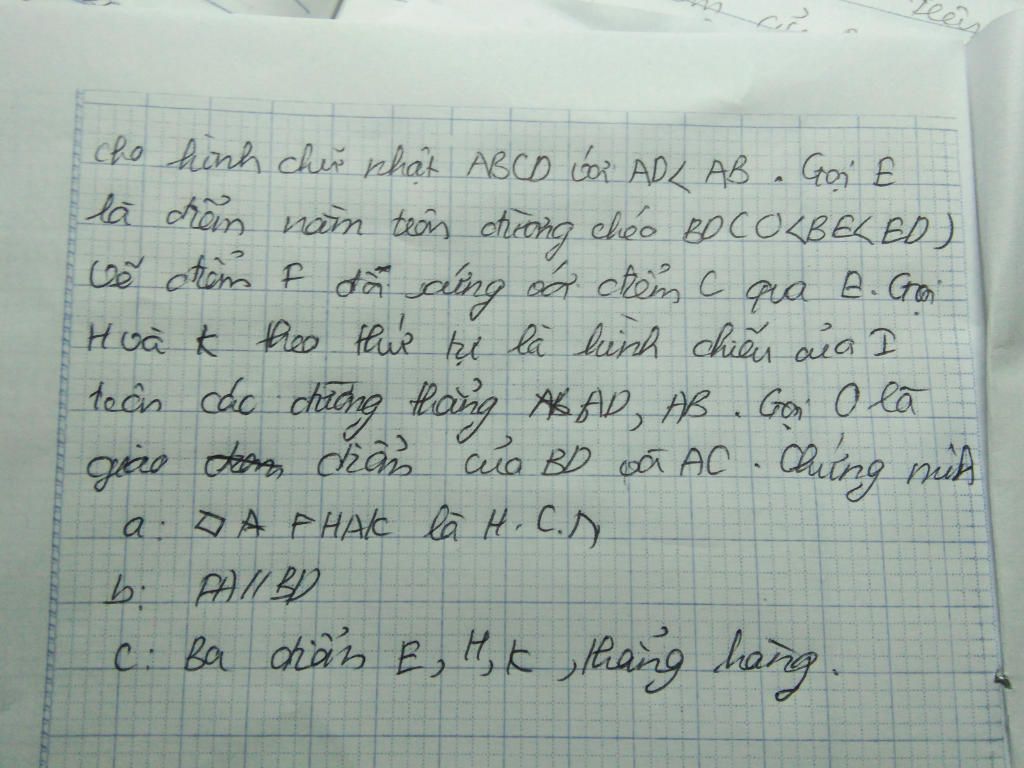 cho hình chữ nhật ABCD với AD< AB. Gọi E
là điểm nằm trên đường chéo BD(O<BE<ED)
Vẽ điểm F đối xứng với điểm C qua E. Gọi
H và K theo thứ tự là hình chiếu của I
trên các đường thẳng AD, AB. Gọi O là
giao điểm của BD và AC. Chứng minh
a: ▱A FHAK là H.C.N
b: FA//BD
c: Ba điểm E, H, K, thẳng hàng.